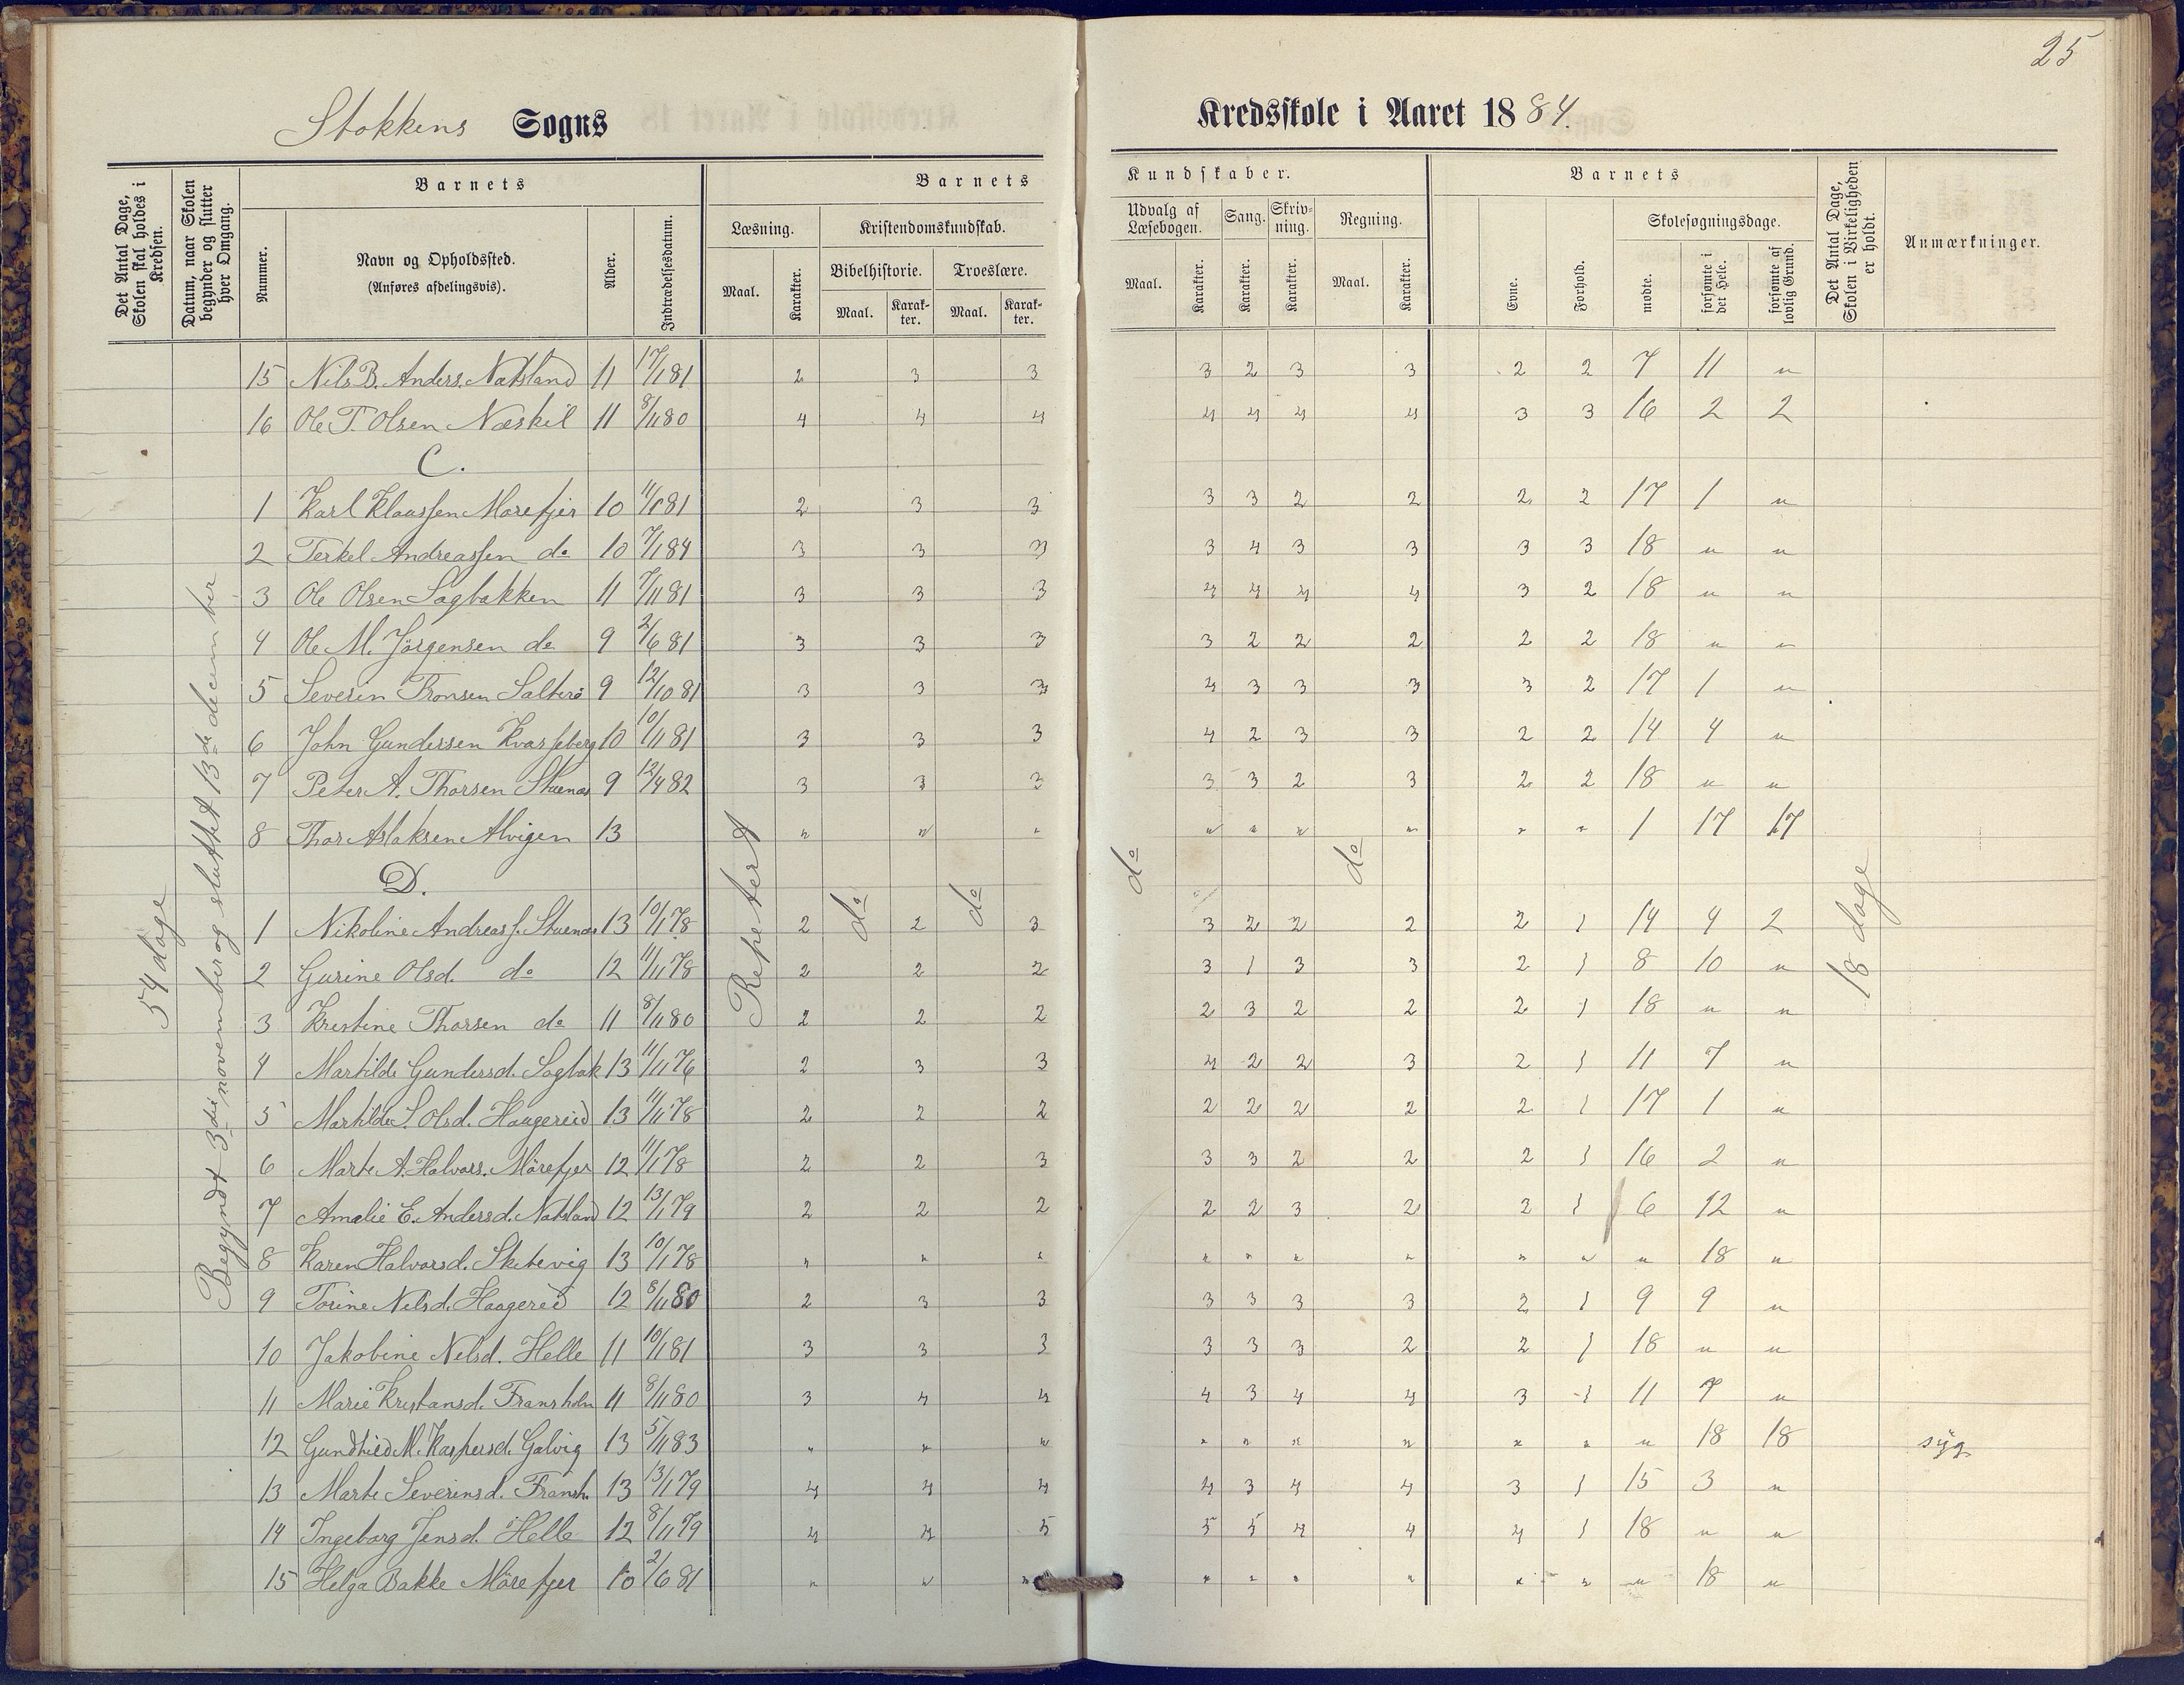 25
Stokkens Sogns Kredsskole i Aaret 1884.
Det Antal Dage, Skolen skal holdes i Kredsen.
Datum, naar Skolen begynder og slutter hver Omgang.
Barnets
Nummer.
Navn og Opholdssted.
(Anføres afdelingsvis).
Alder.
Indtrædelsesdatum.
Barnets Kundskaber.
Læsning. Kristendomskundskab. Udvalg af Læsebogen. Sang. Skrivning. Regning.
Bibelhistorie. Troeslære.
Maal. Karakter. Maal. Karakter. Maal. Karakter. Maal. Karakter. Karakter. Karakter. Maal. Karakter.
Barnets
Evne. Forhold. Skolesøgningsdage.
mødte. forsømte i det Hele. forsømte af lovlig Grund.
Det Antal Dage, Skolen i Virkeligheden er holdt.
Anmærkninger.
54 dage
Begyndt 3die november og sluttet 13de december
Repetert do do do do
18 dage
15 Nils B. Anders. Natsland 11 17/1 81 2 3 3 3 2 3 3 2 2 7 11 "
16 Ole T. Olsen Næskil 11 8/11 80 4 4 4 4 4 4 4 3 3 16 2 2
C.
1 Karl Klaussen Morefjer 10 11/1 81 2 3 3 3 3 2 2 2 2 17 1 "
2 Terkel Andreassen do 10 7/1 84 3 3 3 3 4 3 3 3 3 18 " "
3 Ole Olsen Sagbakken 11 7/11 81 3 3 3 4 4 4 4 3 2 18 " "
4 Ole M. Jörgensen do 9 2/6 81 3 3 3 3 2 2 2 2 2 18 " "
5 Severin Tronsen Salterö 9 12/10 81 3 3 3 4 3 3 3 3 2 17 1 "
6 John Gundersen Kvasseberg 10 10/11 81 3 3 3 4 2 3 3 2 2 14 4 "
7 Peter A. Thorsen Stuenæs 9 12/4 82 3 3 3 3 3 2 3 2 2 18 " "
8 Thor Aslaksen Alvigen 13 " " " " " " " " " 1 17 17
D.
1 Nikoline Andreass. Stuenæs 13 10/1 78 2 2 3 3 2 2 2 2 1 14 4 2
2 Gurine Olsd. do 12 11/11 78 2 2 2 3 1 3 3 2 1 8 10 "
3 Kristine Thorsen do 11 8/11 80 2 2 2 2 3 2 2 2 1 18 " "
4 Martilde Gundersd. Sagbak 13 11/11 76 2 3 3 4 2 2 3 2 1 11 7 "
5 Martilde S. Olsd. Haugereid 13 11/11 78 2 2 2 2 2 2 2 2 1 17 1 "
6 Marte A. Halvors. Mörefjer 12 11/1 78 2 2 3 3 3 2 2 2 1 16 2 "
7 Amalie E. Andersd. Natsland 12 13/1 79 2 2 2 2 2 3 2 2 1 6 12 "
8 Karen Halvorsd. Sketevig 13 10/1 78 " " " " " " " " " " 18 "
9 Torine Nilsd. Haagereid 12 8/11 80 2 3 3 3 3 3 3 2 1 9 9 "
10 Jakobine Nelsd. Helle 11 10/1 81 3 3 3 3 3 3 2 2 1 18 " "
11 Marie Kristansd. Fransholm 11 8/11 80 3 4 4 4 3 4 4 3 1 11 7 "
12 Gundhild M. Kaspersd. Galvig 13 5/11 83 " " " " " " " " " " 18 18 syg
13 Marte Severinsd. Fransh. 13 13/1 79 4 4 4 4 3 4 4 3 1 15 3 "
14 Ingeborg Jensd. Helle 12 8/11 79 4 4 5 5 5 4 4 4 1 18 " "
15 Helga Bakke Mörefjer 10 2/6 81 " " " " " " " " " " 18 "